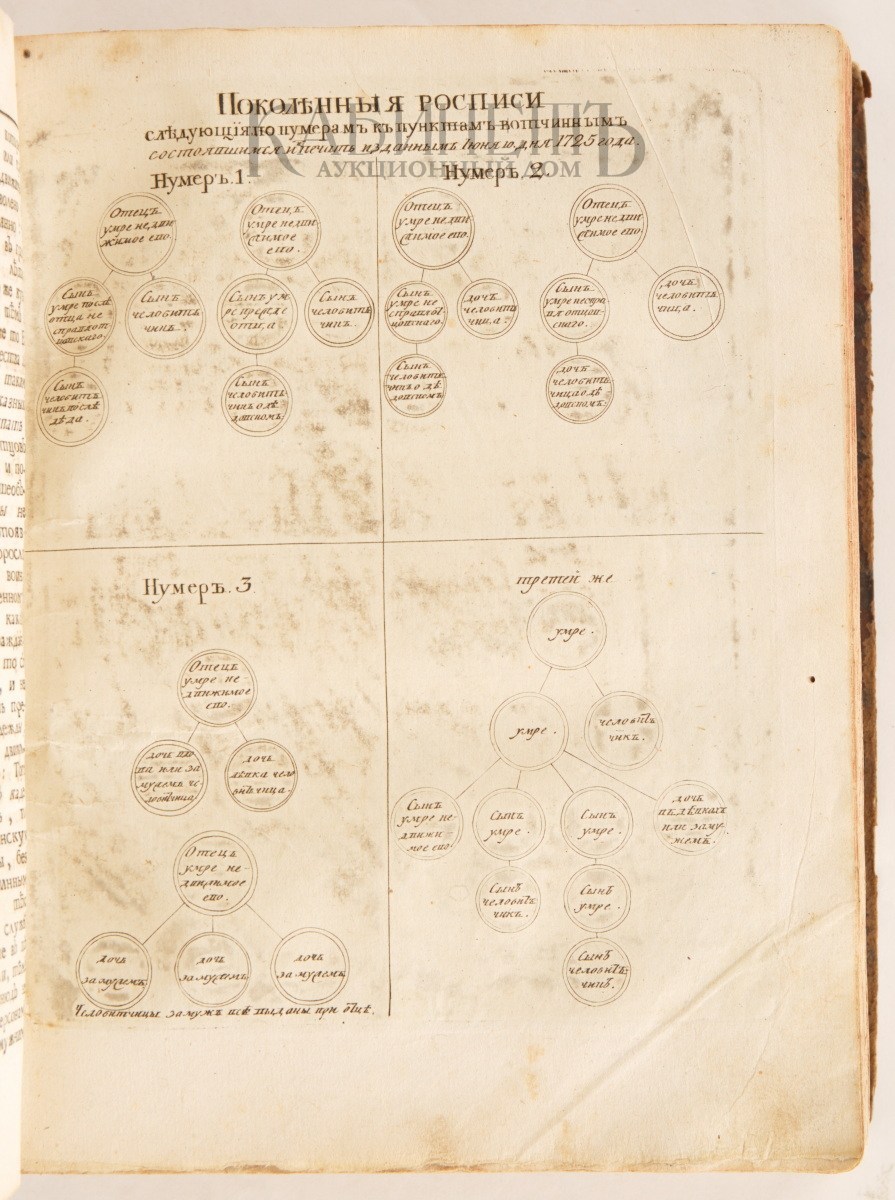 ПОКОЛѢННЫЯ РОСПИСИ
слѣдующїя по нумерамъ къ пунктамъ вотчиннымъ
состоявшимся и печать изданнымъ Iюня дня 1725 года.
КАБИНЕТЪ
АУКЦИОННЫЙ ДОМ
Нумеръ. 1.
Отецъ
умре недви
жимое ево.
Сынъ
умре послѣ
отца не
справя от
цовскаго.
Сынъ
человит
чикъ.
Сынъ
человит
чикъ послѣ
дѣда.
Отецъ
умре недви
жимое
ево.
Сынъ ум
ре прежде
отца
Сынъ
человит
чикъ.
Сынъ
человит
чикъ о дѣ
довскомъ.
Нумеръ. 2.
Отецъ
умре недви
жимое ево
Сынъ
умре не
справя
цовскаго.
дочь
человит
чица.
Сынъ
человит
чикъ о дѣ
довскомъ
Отецъ
умре недви
жимое ево
Сынъ
умре не спра
вя отцов
скаго.
дочь
человит
чица.
дочь
человит
чица о дѣ
довскомъ.
Нумеръ. 3
Отецъ
умре не-
движимое
ево.
дочь вдо
ва или за
мужемъ че-
ловитчица
дочь
дѣвка чело
витчица.
Отецъ
умре не-
движимое
ево.
дочь
замужемъ
дочь
замужемъ
дочь
замужемъ
Человитчицы замужъ всѣ выданы при отцѣ.
третей же
умре.
умре.
человит
чикъ.
Сынъ
умре не-
движи-
мое ево
Сынъ
умре.
Сынъ
умре.
дочь
въ дѣвкахъ
или заму-
жемъ.
Сынъ
человит
чикъ.
Сынъ
умре.
Сынъ
человит
чикъ.